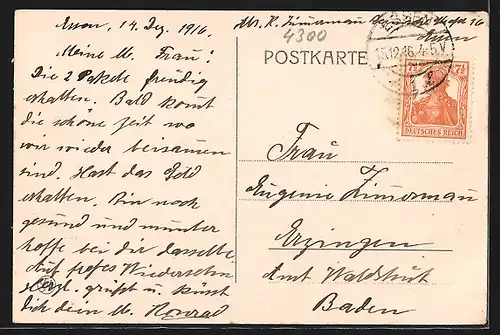 Essen, 14. Dez. 1916.
Meine l. Frau!
Die 2 Pakete freudig
erhalten. Bald komt
die schöne Zeit wo
wir wieder beisamen
sind. Hast das Geld
erhalten. Bin noch
gesund und munter
hoffe bei dir dasselbe
Auf frohes Wiedersehn
Hergl. grüßt u. küßt
dich dein l. Konrad
Abs. K. Zimerman
Essen
4300
POSTKARTE
15.12.16. 4-5.V
7½ 7½
DEUTSCHES REICH
Frau
Eugenie Zimerman
Erzingen
Amt Waldshut
Baden